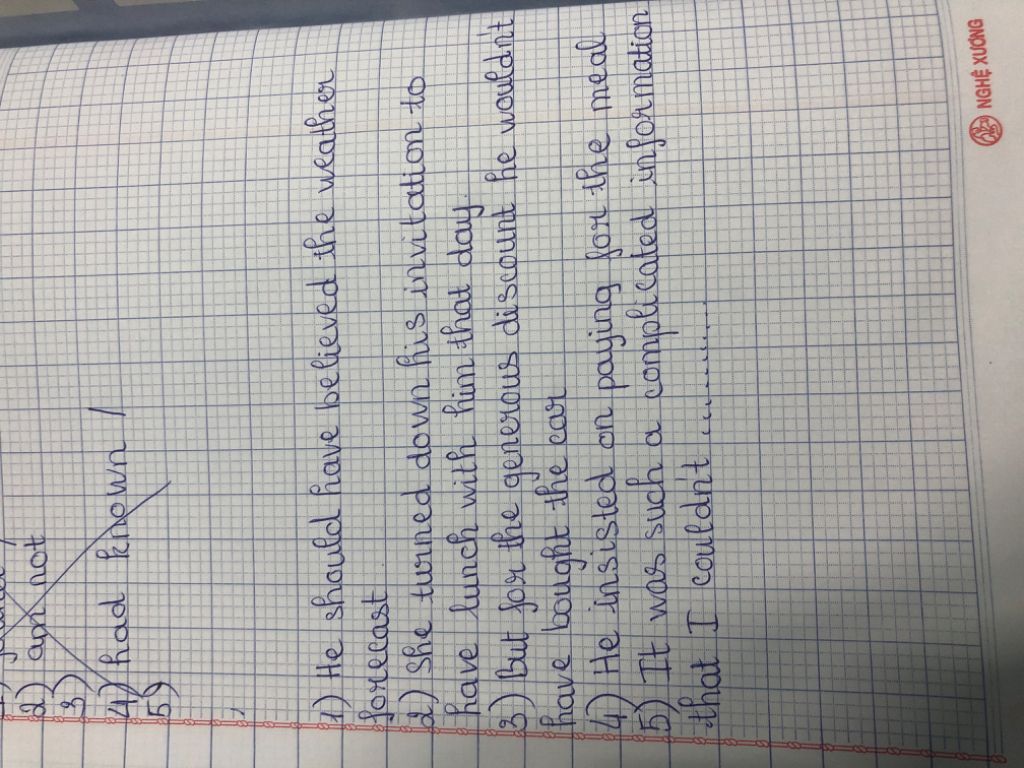 2) am not
3)
4) had known /
5)
1) He should have believed the weather
forecast
2) She turned down his invitation to
have lunch with him that day.
3) but for the generous discount he wouldn't
have bought the car
4) He insisted on paying for the meal
5) It was such a complicated information
that I couldn't ............
NGHỆ XƯƠNG